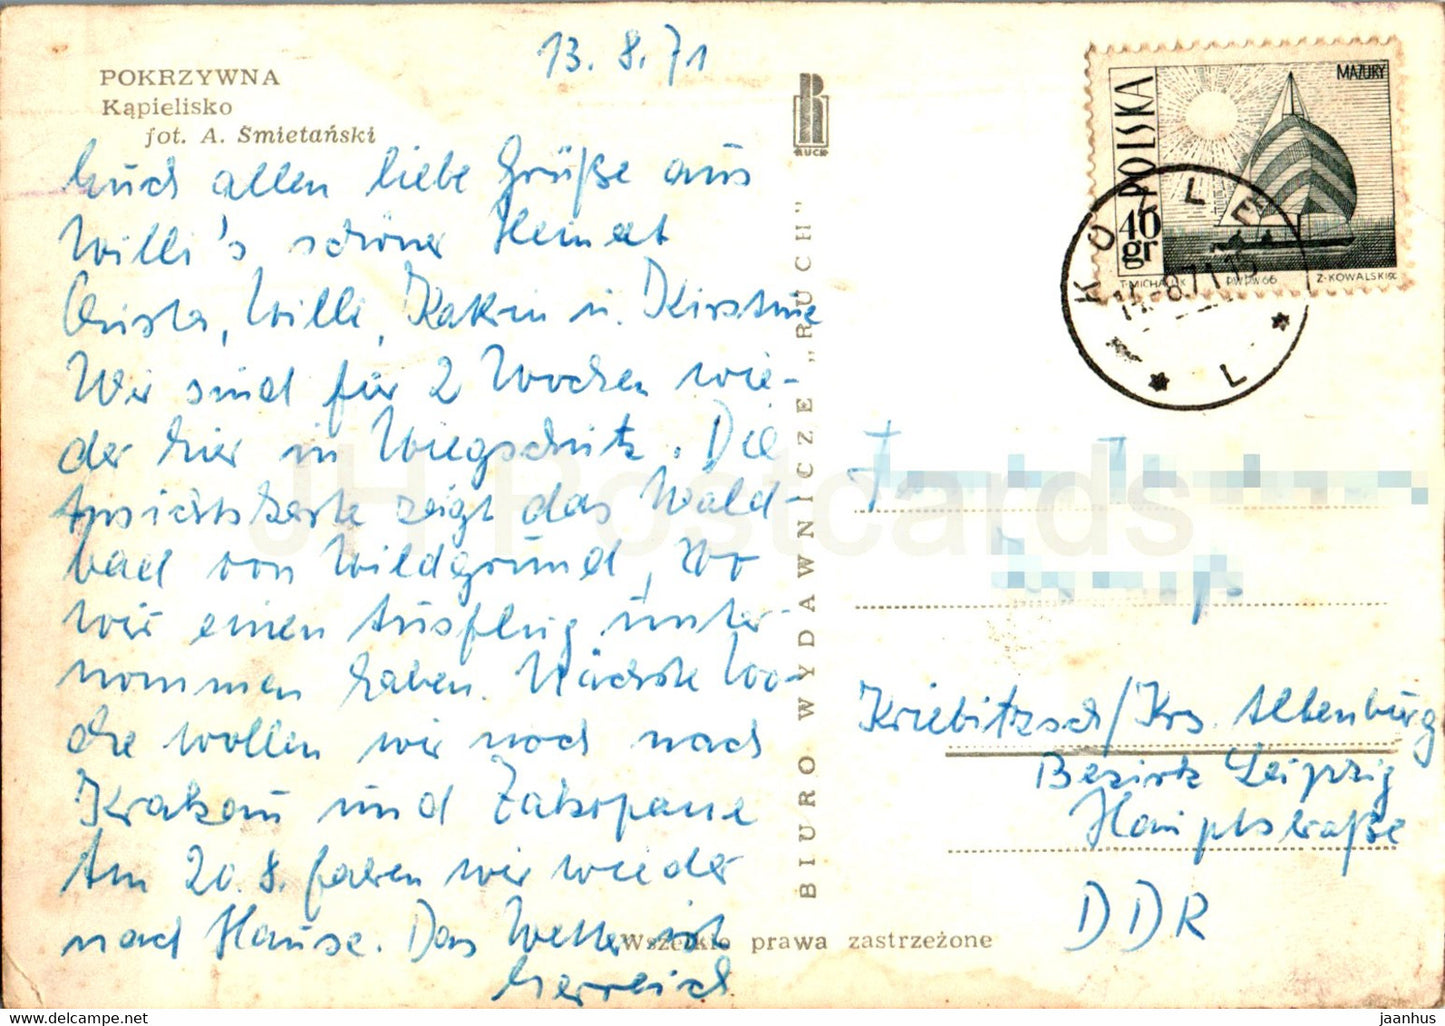 13. 8. 71
POKRZYWNA
Kąpielisko
fot. A. Śmietański
Euch allen liebe Grüße aus
Willi's schöner Heimat
Christa, Willi, Katrin u. Kirstine
Wir sind für 2 Wochen wie-
der hier in Wiegschütz. Die
Ansichtskarte zeigt das Wald-
bad von Wildgrund, wo
wir einen Ausflug unter-
nommen haben. Nächste Wo-
che wollen wir noch nach
Krakau und Zakopane
Am 20. 8. fahren wir wieder
nach Hause. Das Wetter ist
herrlich
RUCH
BIURO WYDAWNICZE „RUCH"
Wszelkie prawa zastrzeżone
POLSKA
40
gr
MAZURY
T. MICHALUK PWPW 66 Z. KOWALSKI SC.
Kriebitzsch/Krs. Altenburg
Bezirk Leipzig
Hauptstraße
DDR
JH Postcards
https://www.delcampe.net
jaanhus